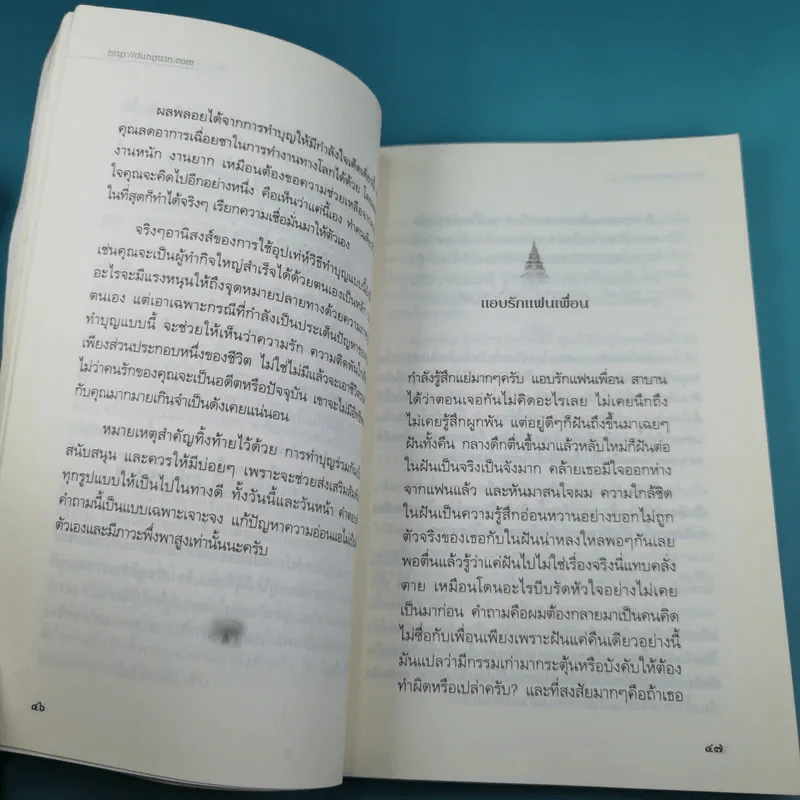 http://dungtrin.com
ผลพลอยได้จากการทำบุญให้มีกำลังใจเด็ดเดี่ยวก็
คุณลดอาการเฉื่อยชาในการทำงานทางโลกได้ด้วย
งานหนัก งานยาก เหมือนต้องขอความช่วยเหลือจาก
ใจคุณจะคิดไปอีกอย่างหนึ่ง คือเห็นว่าแค่นี้เอง
ในที่สุดก็ทำได้จริงๆ เรียกความเชื่อมั่นมาให้ตัวเอง
จริงๆอานิสงส์ของการใช้อุปเท่ห์วิธีทำบุญแบบนี้
เช่นคุณจะเป็นผู้ทำกิจใหญ่สำเร็จได้ด้วยตนเองเป็นหลัก
อะไรจะมีแรงหนุนให้ถึงจุดหมายปลายทางด้วยความ
ตนเอง แต่เอาเฉพาะกรณีที่กำลังเป็นประเด็นปัญหาของ
ทำบุญแบบนี้ จะช่วยให้เห็นว่าความรัก ความติดพัน
เพียงส่วนประกอบหนึ่งของชีวิต ไม่ใช่ไม่มีแล้วจะเอาชีวิต
ไม่ว่าคนรักของคุณจะเป็นอดีตหรือปัจจุบัน เขาจะไม่มี
กับคุณมากมายเกินจำเป็นดังเคยแน่นอน
หมายเหตุสำคัญทิ้งท้ายไว้ด้วย การทำบุญร่วมกัน
สนับสนุน และควรให้มีบ่อยๆ เพราะจะช่วยส่งเสริม
ทุกรูปแบบให้เป็นไปในทางดี ทั้งวันนี้และวันหน้า คำตอบ
คำถามนี้เป็นแบบเฉพาะเจาะจง แก้ปัญหาความอ่อนแอไม่เป็น
ตัวเองและมีภาวะพึ่งพาสูงเท่านั้นนะครับ
๔๖
แอบรักแฟนเพื่อน
กำลังรู้สึกแย่มากๆครับ แอบรักแฟนเพื่อน สาบาน
ได้ว่าตอนเจอกันไม่คิดอะไรเลย ไม่เคยนึกถึง
ไม่เคยรู้สึกผูกพัน แต่อยู่ดีๆก็ฝันถึงขึ้นมาเฉยๆ
ฝันทั้งคืน กลางดึกตื่นขึ้นมาแล้วหลับใหม่ก็ฝันต่อ
ในฝันเป็นจริงเป็นจังมาก คล้ายเธอมีใจออกห่าง
จากแฟนแล้ว และหันมาสนใจผม ความใกล้ชิด
ในฝันเป็นความรู้สึกอ่อนหวานอย่างบอกไม่ถูก
ตัวจริงของเธอกับในฝันน่าหลงใหลพอๆกันเลย
พอตื่นแล้วรู้ว่าแค่ฝันไปไม่ใช่เรื่องจริงนี่แทบคลั่ง
ตาย เหมือนโดนอะไรบีบรัดหัวใจอย่างไม่เคย
เป็นมาก่อน คำถามคือผมต้องกลายมาเป็นคนคิด
ไม่ซื่อกับเพื่อนเพียงเพราะฝันแค่คืนเดียวอย่างนี้
มันแปลว่ามีกรรมเก่ามากระตุ้นหรือบังคับให้ต้อง
ทำผิดหรือเปล่าครับ? และที่สงสัยมากๆคือถ้าเธอ
๔๗